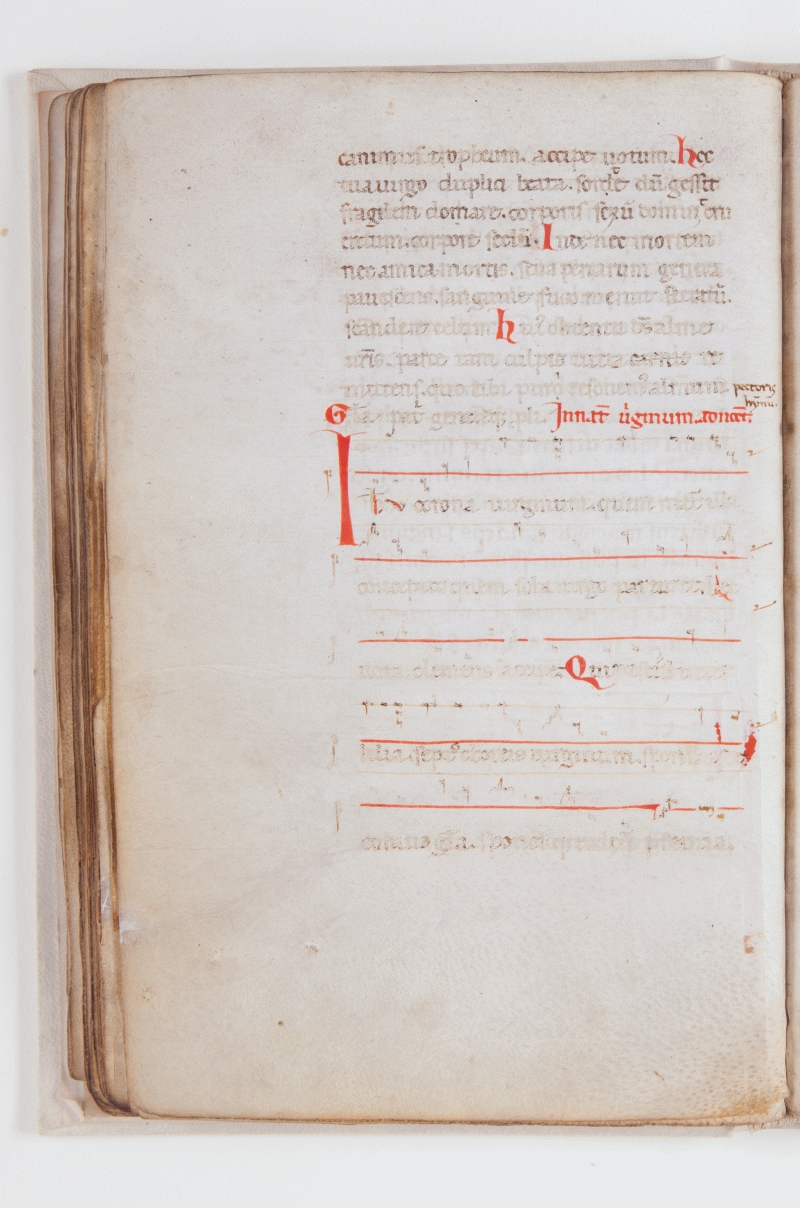 canimus tropheum. accipe uotum. hec
tua uirgo duplici beata. sorte dū gessit
fragilem domare. corporis sexū domuit cru
entum. corpore seclū. Inde nec mortem
nec amica mortis. seua penarum genera
pauescens. sanguine fuso meruit secratū.
scandere celum. hui⁹ obtentu ds̄ alme
nr̄is. parce iam culpis uitia carnis re
mittens. quo tibi puri resonem⁹ almum pectoris
hymnū.
Gl̄a patri geniteq; proli. Inn. uirginum.
Ihu corona uirginum. quem mat̄ illa
concepit. que sola uirgo parturit. hec
uota clemens accipe. Qui pascis inter
lilia. septus choreis uirginum. sponsus
decorus gl̄a. sponsisq; reddens premia.